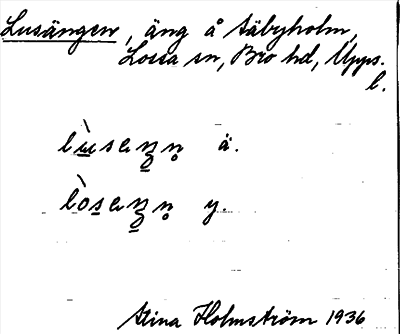 Lusängen, äng å Säbyholm,
Lossa sn, Bro hd, Upps.
l.
lùsaŋŋ̥ ä.
lòsaŋŋ̥ y.
Stina Holmström 1936